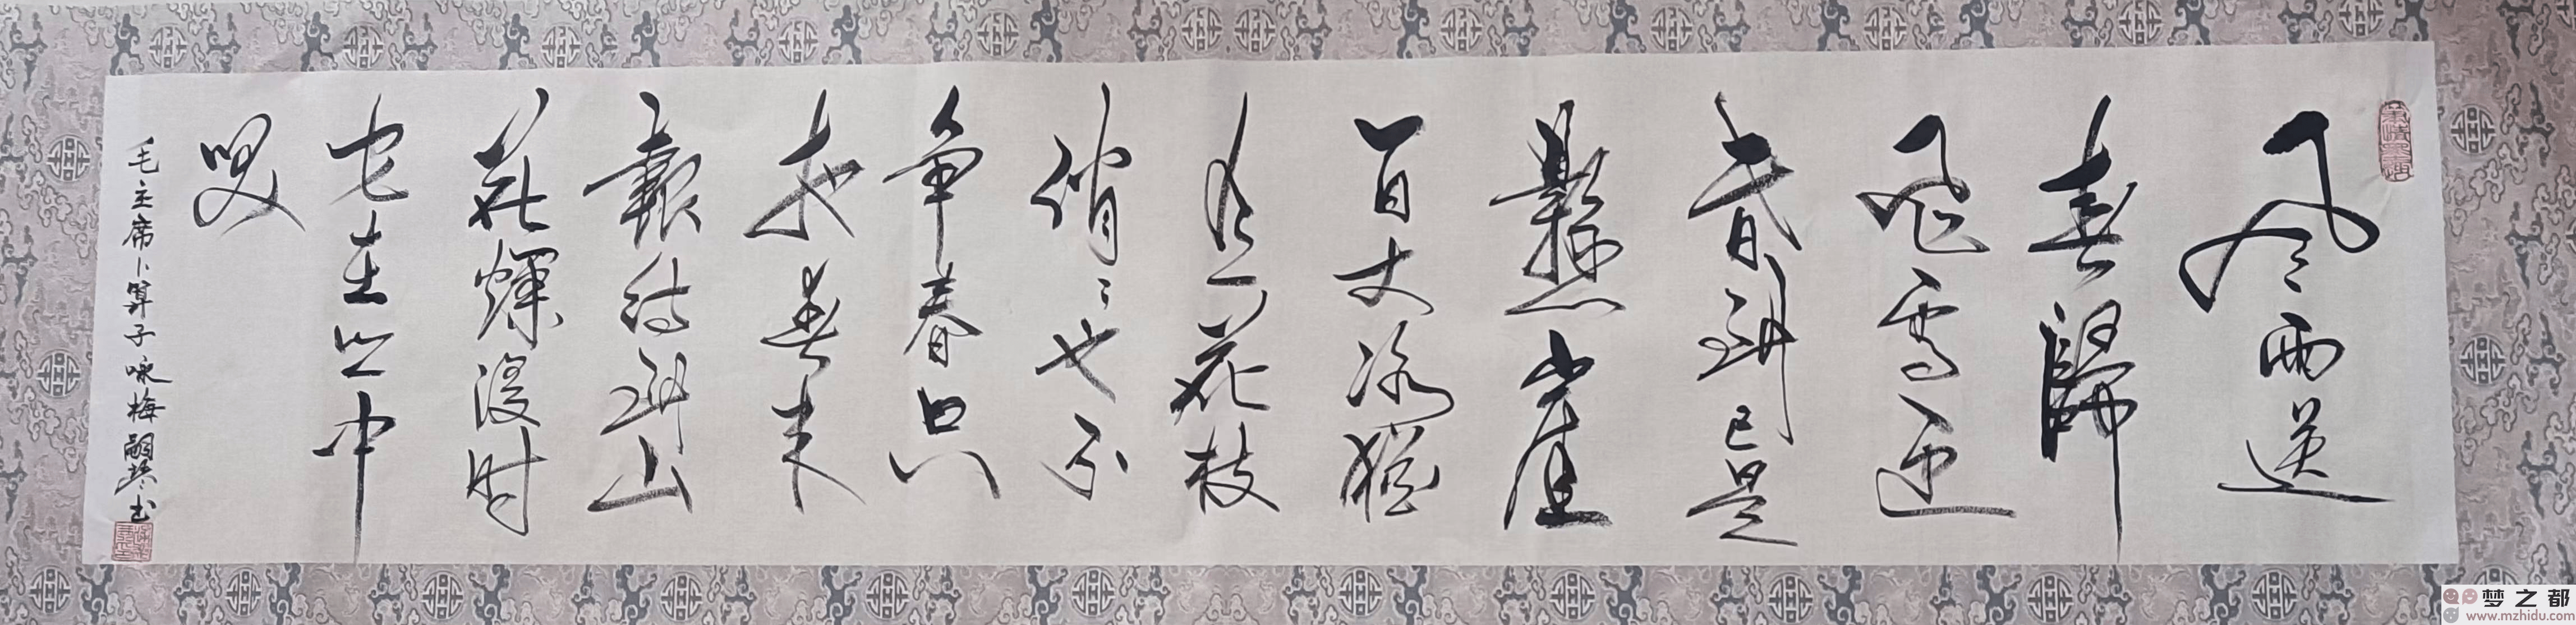 风雨送
春歸
飛雪迎
春到已是
懸崖
百丈冰猶
有花枝
俏〻也不
争春只
把春来
報待到山
花爛漫时
它在丛中
咲
毛主席卜算子咏梅嗣书
梦之都
www.mzhidu.com